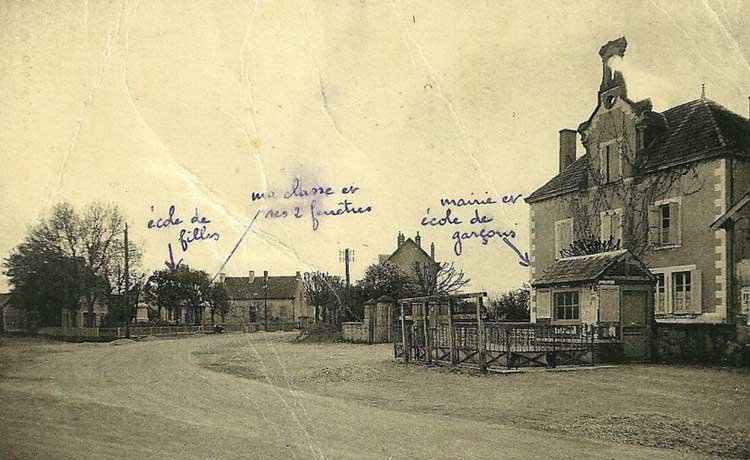 école de
filles
ma classe et
ses 2 fenêtres
mairie et
école de
garçons